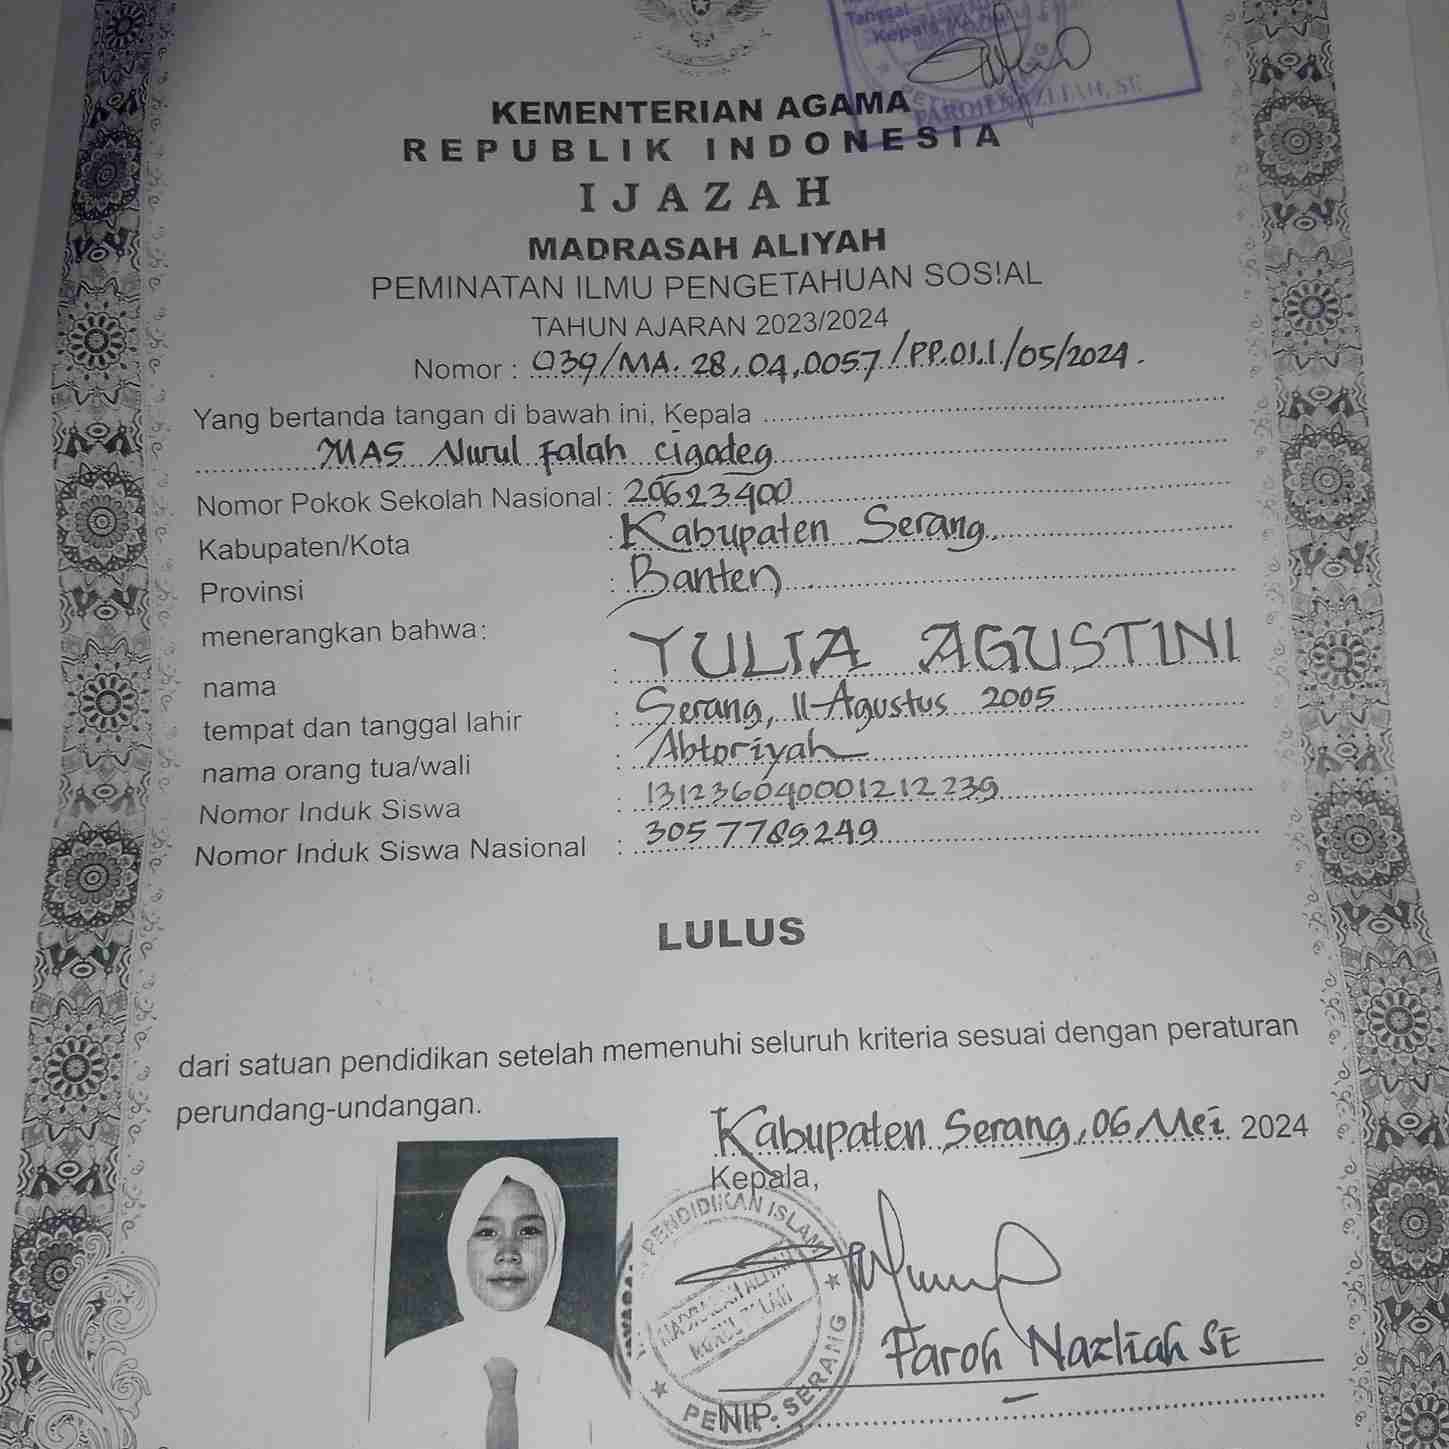 Tanggal
Kepala
KEMENTERIAN AGAMA
REPUBLIK INDONESIA
IJAZAH
MADRASAH ALIYAH
PEMINATAN ILMU PENGETAHUAN SOSIAL
TAHUN AJARAN 2023/2024
Nomor : 039/MA.28.04.0057/PP.01.1/05/2024.
Yang bertanda tangan di bawah ini, Kepala
MAS Nurul Falah Cigodeg
Nomor Pokok Sekolah Nasional: 20623400
Kabupaten/Kota : Kabupaten Serang
Provinsi : Banten
menerangkan bahwa:
nama : YULIA AGUSTINI
tempat dan tanggal lahir : Serang, 11 Agustus 2005
nama orang tua/wali : Abtoriyah
Nomor Induk Siswa : 131236040001212239
Nomor Induk Siswa Nasional : 3057789249
LULUS
dari satuan pendidikan setelah memenuhi seluruh kriteria sesuai dengan peraturan
perundang-undangan.
Kabupaten Serang, 06 Mei 2024
Kepala,
PENDIDIKAN ISLAM
MADRASAH ALIYAH
NURUL FALAH
SERANG
Faroh Nazliah SE
NIP.